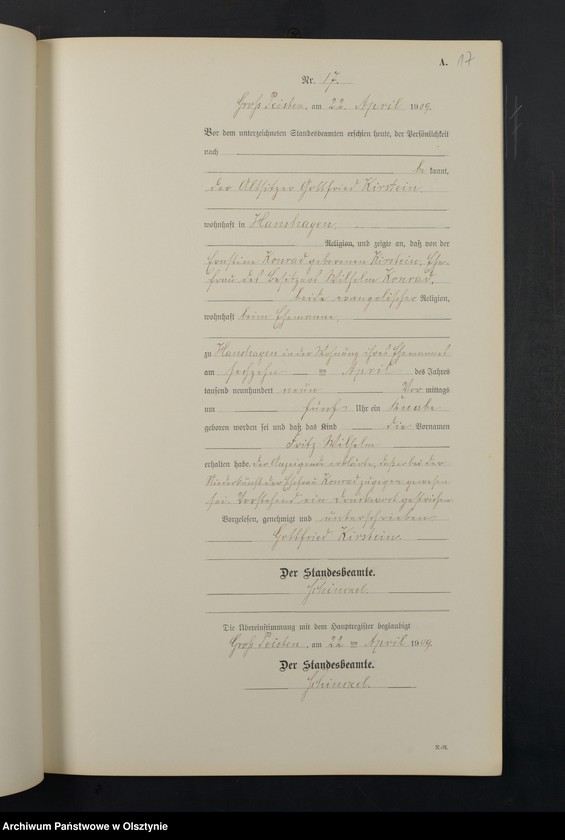 A. 17
Nr. 17.
Groß Peisten, am 22. April 1909.
Vor dem unterzeichneten Standesbeamten erschien heute, der Persönlichkeit
nach
be kannt,
der Altsitzer Gottfried Kirstein
wohnhaft in Hanshagen
Religion, und zeigte an, daß von der
Ernstine Konrad geborenen Kirstein, Ehe-
frau des Besitzers Wilhelm Konrad,
beide evangelischer Religion,
wohnhaft beim Ehemanne
zu Hanshagen in der Wohnung ihres Ehemannes
am sechzehn ten April des Jahres
tausend neunhundert neun Vor mittags
um fünf Uhr ein Knabe
geboren worden sei und daß das Kind die Vornamen
Fritz Wilhelm
erhalten habe. Der Anzeigende erklärte, daß er bei der
Niederkunft der Ehefrau Konrad zugegen gewesen
sei. Vorstehend ein Druckwort gestrichen.
Vorgelesen, genehmigt und unterschrieben
Gottfried Kirstein
Der Standesbeamte.
Die Übereinstimmung mit dem Hauptregister beglaubigt
Groß Peisten, am 22 ten April 1909.
Der Standesbeamte.
Archiwum Państwowe w Olsztynie